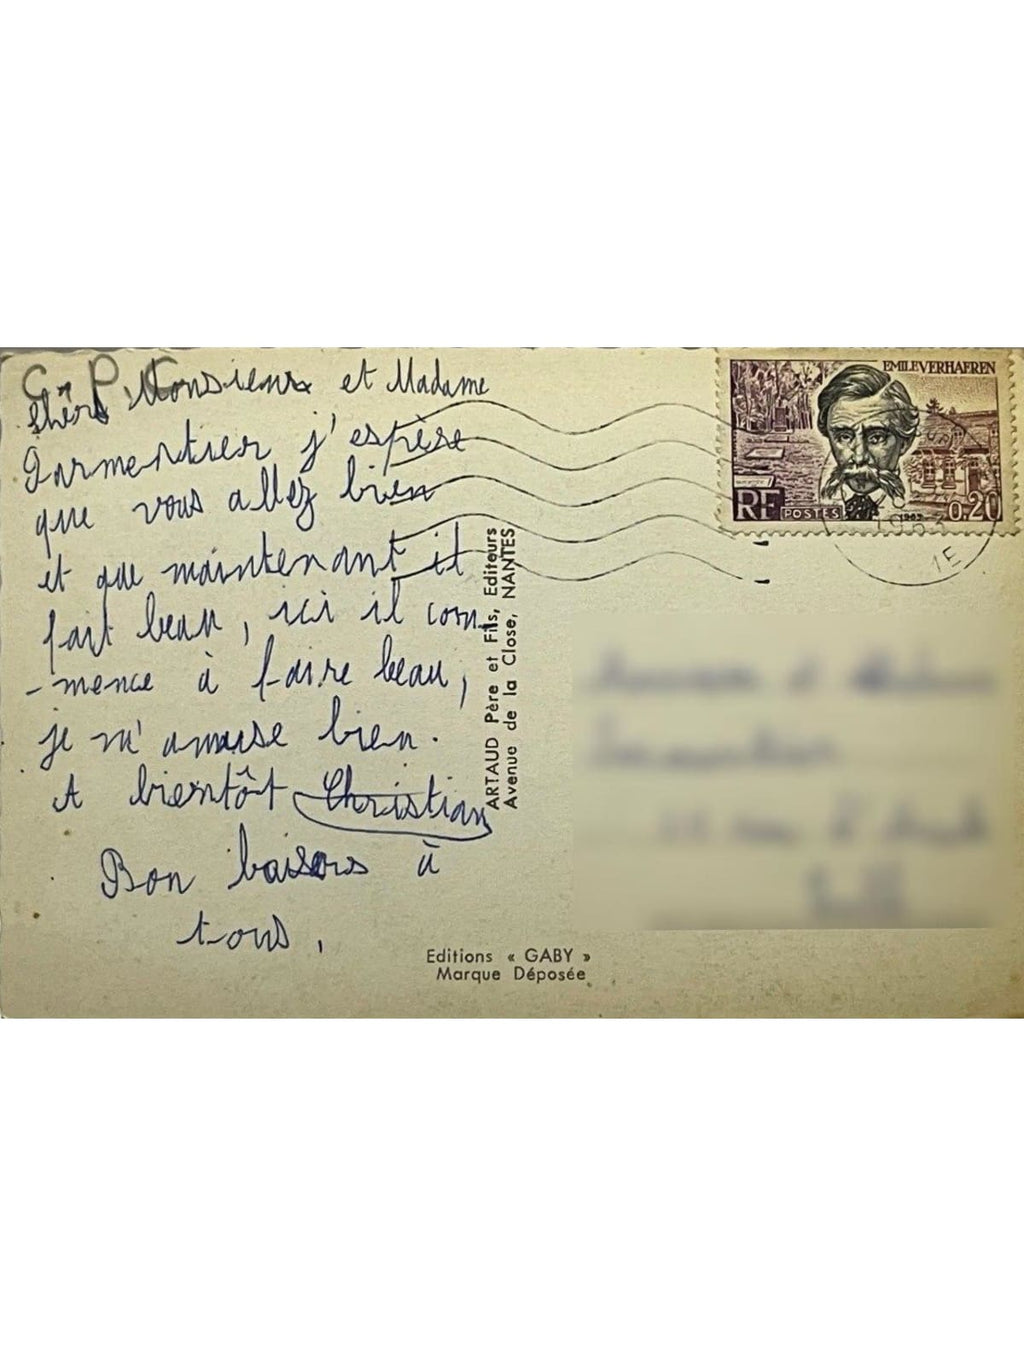 C. P. C
chers Monsieur et Madame
Parmentier j'espère
que vous allez bien
et que maintenant il
fait beau, ici il com
-mence à faire beau,
je m'amuse bien.
A bientôt Christian
Bon baisers à
tous,
ARTAUD Père et Fils, Editeurs
Avenue de la Close, NANTES
Editions « GABY »
Marque Déposée
EMILE VERHAEREN
RF POSTES 1963 0,20
1963